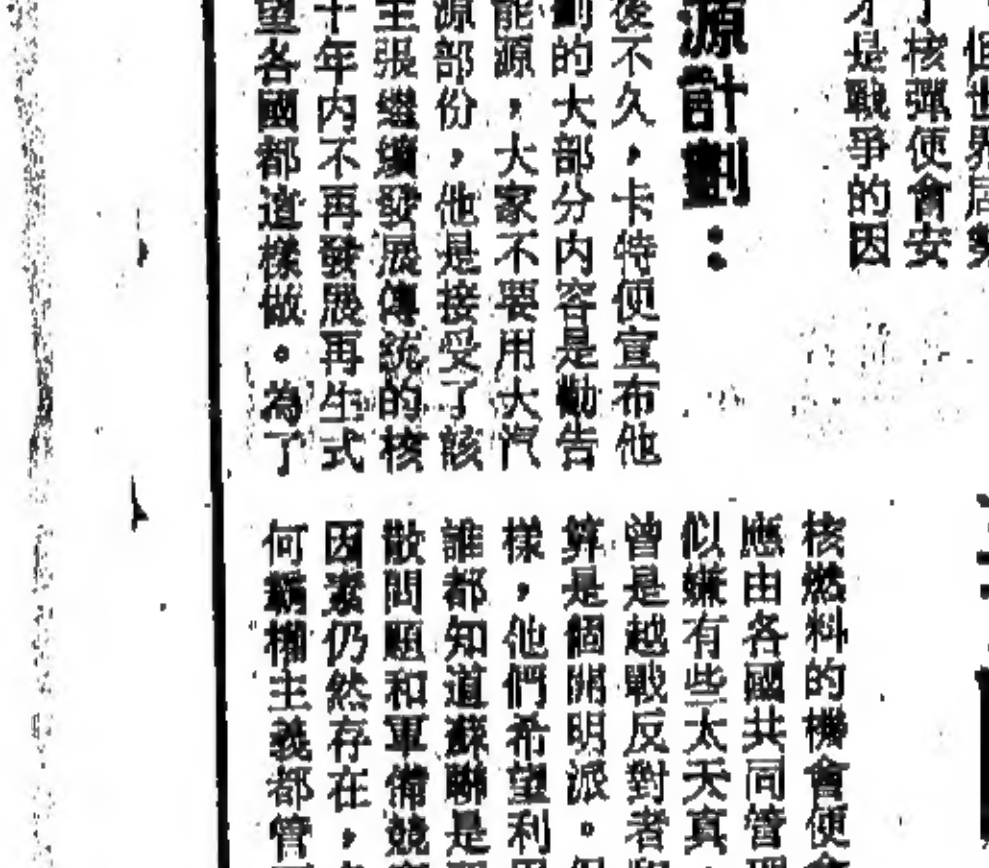 個世界局勢
核彈便會安
才是戰爭的因
源計劃：
後不久，卡特便宣布他
劃的大部分内容是勸告
能源，大家不要用大汽
源部份，他是接受了該
主張繼續發展傳統的核
十年内不再發展再生式
望各國都這樣做。為了
核燃料的機會便會
應由各國共同管理
似嫌有些太天真，
曾是越戰反對者
算是個開明派。但
樣，他們希望利用
誰都知道蘇聯是
散問題和軍備競
因素仍然存在，
何霸權主義都管